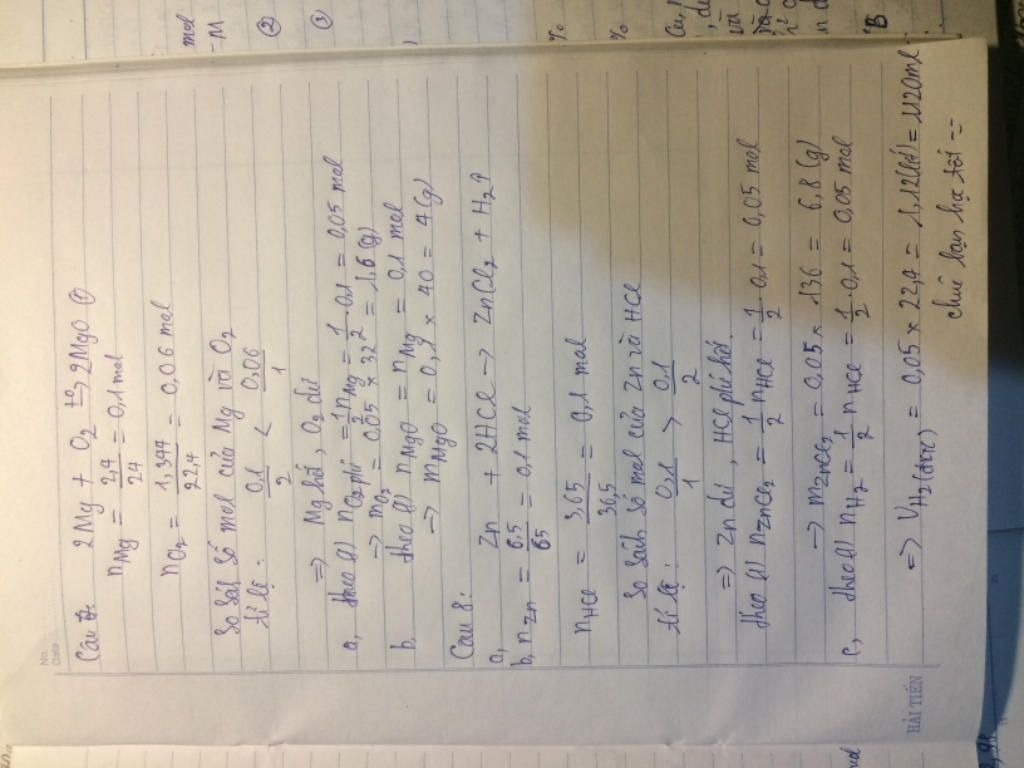 No.
Date
Câu 7: 2Mg + O2 t°→ 2MgO (1)
nMg = 2,4/24 = 0,1 mol
nO2 = 1,344/22,4 = 0,06 mol
So sánh số mol của Mg và O2
tỉ lệ: 0,1/2 < 0,06/1
=> Mg hết, O2 dư
a, theo (1) nO2 pư = 1/2 nMg = 1/2 . 0,1 = 0,05 mol
-> mO2 = 0,05 × 32 = 1,6 (g)
b, theo (1) nMgO = nMg = 0,1 mol
-> mMgO = 0,1 × 40 = 4 (g)
Câu 8:
a, Zn + 2HCl -> ZnCl2 + H2↑
b, nZn = 6,5/65 = 0,1 mol
nHCl = 3,65/36,5 = 0,1 mol
So sánh số mol của Zn và HCl
tỉ lệ: 0,1/1 > 0,1/2
=> Zn dư, HCl pư hết
theo (1) nZnCl2 = 1/2 nHCl = 1/2 . 0,1 = 0,05 mol
-> mZnCl2 = 0,05 × 136 = 6,8 (g)
c, theo (1) nH2 = 1/2 nHCl = 1/2 . 0,1 = 0,05 mol
=> VH2 (đktc) = 0,05 × 22,4 = 1,12 (lít) = 1120ml
chúc bạn học tốt --
HẢI TIẾN
mol
-M
(2)
(3)
%
%